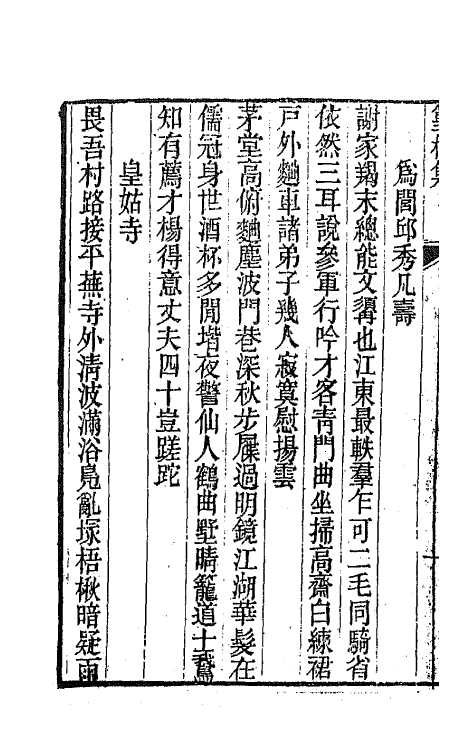 爲閭邱秀凡壽
謝家羯末總能文羯也江東最軼羣乍可二毛同騎省
依然三耳說參軍行吟才客靑門曲坐掃高齋白練裙
戶外麴車諸弟子幾人寂寞慰揚雲
茅堂高俯麴塵波門巷深秋步屧過明鏡江湖華髮在
儒冠身世酒杯多閒堦夜警仙人鶴曲墅晴籠道士鵞
知有薦才楊得意丈夫四十豈蹉跎
皇姑寺
畏吾村路接平蕪寺外淸波滿浴鳧亂塚梧楸暗疑雨